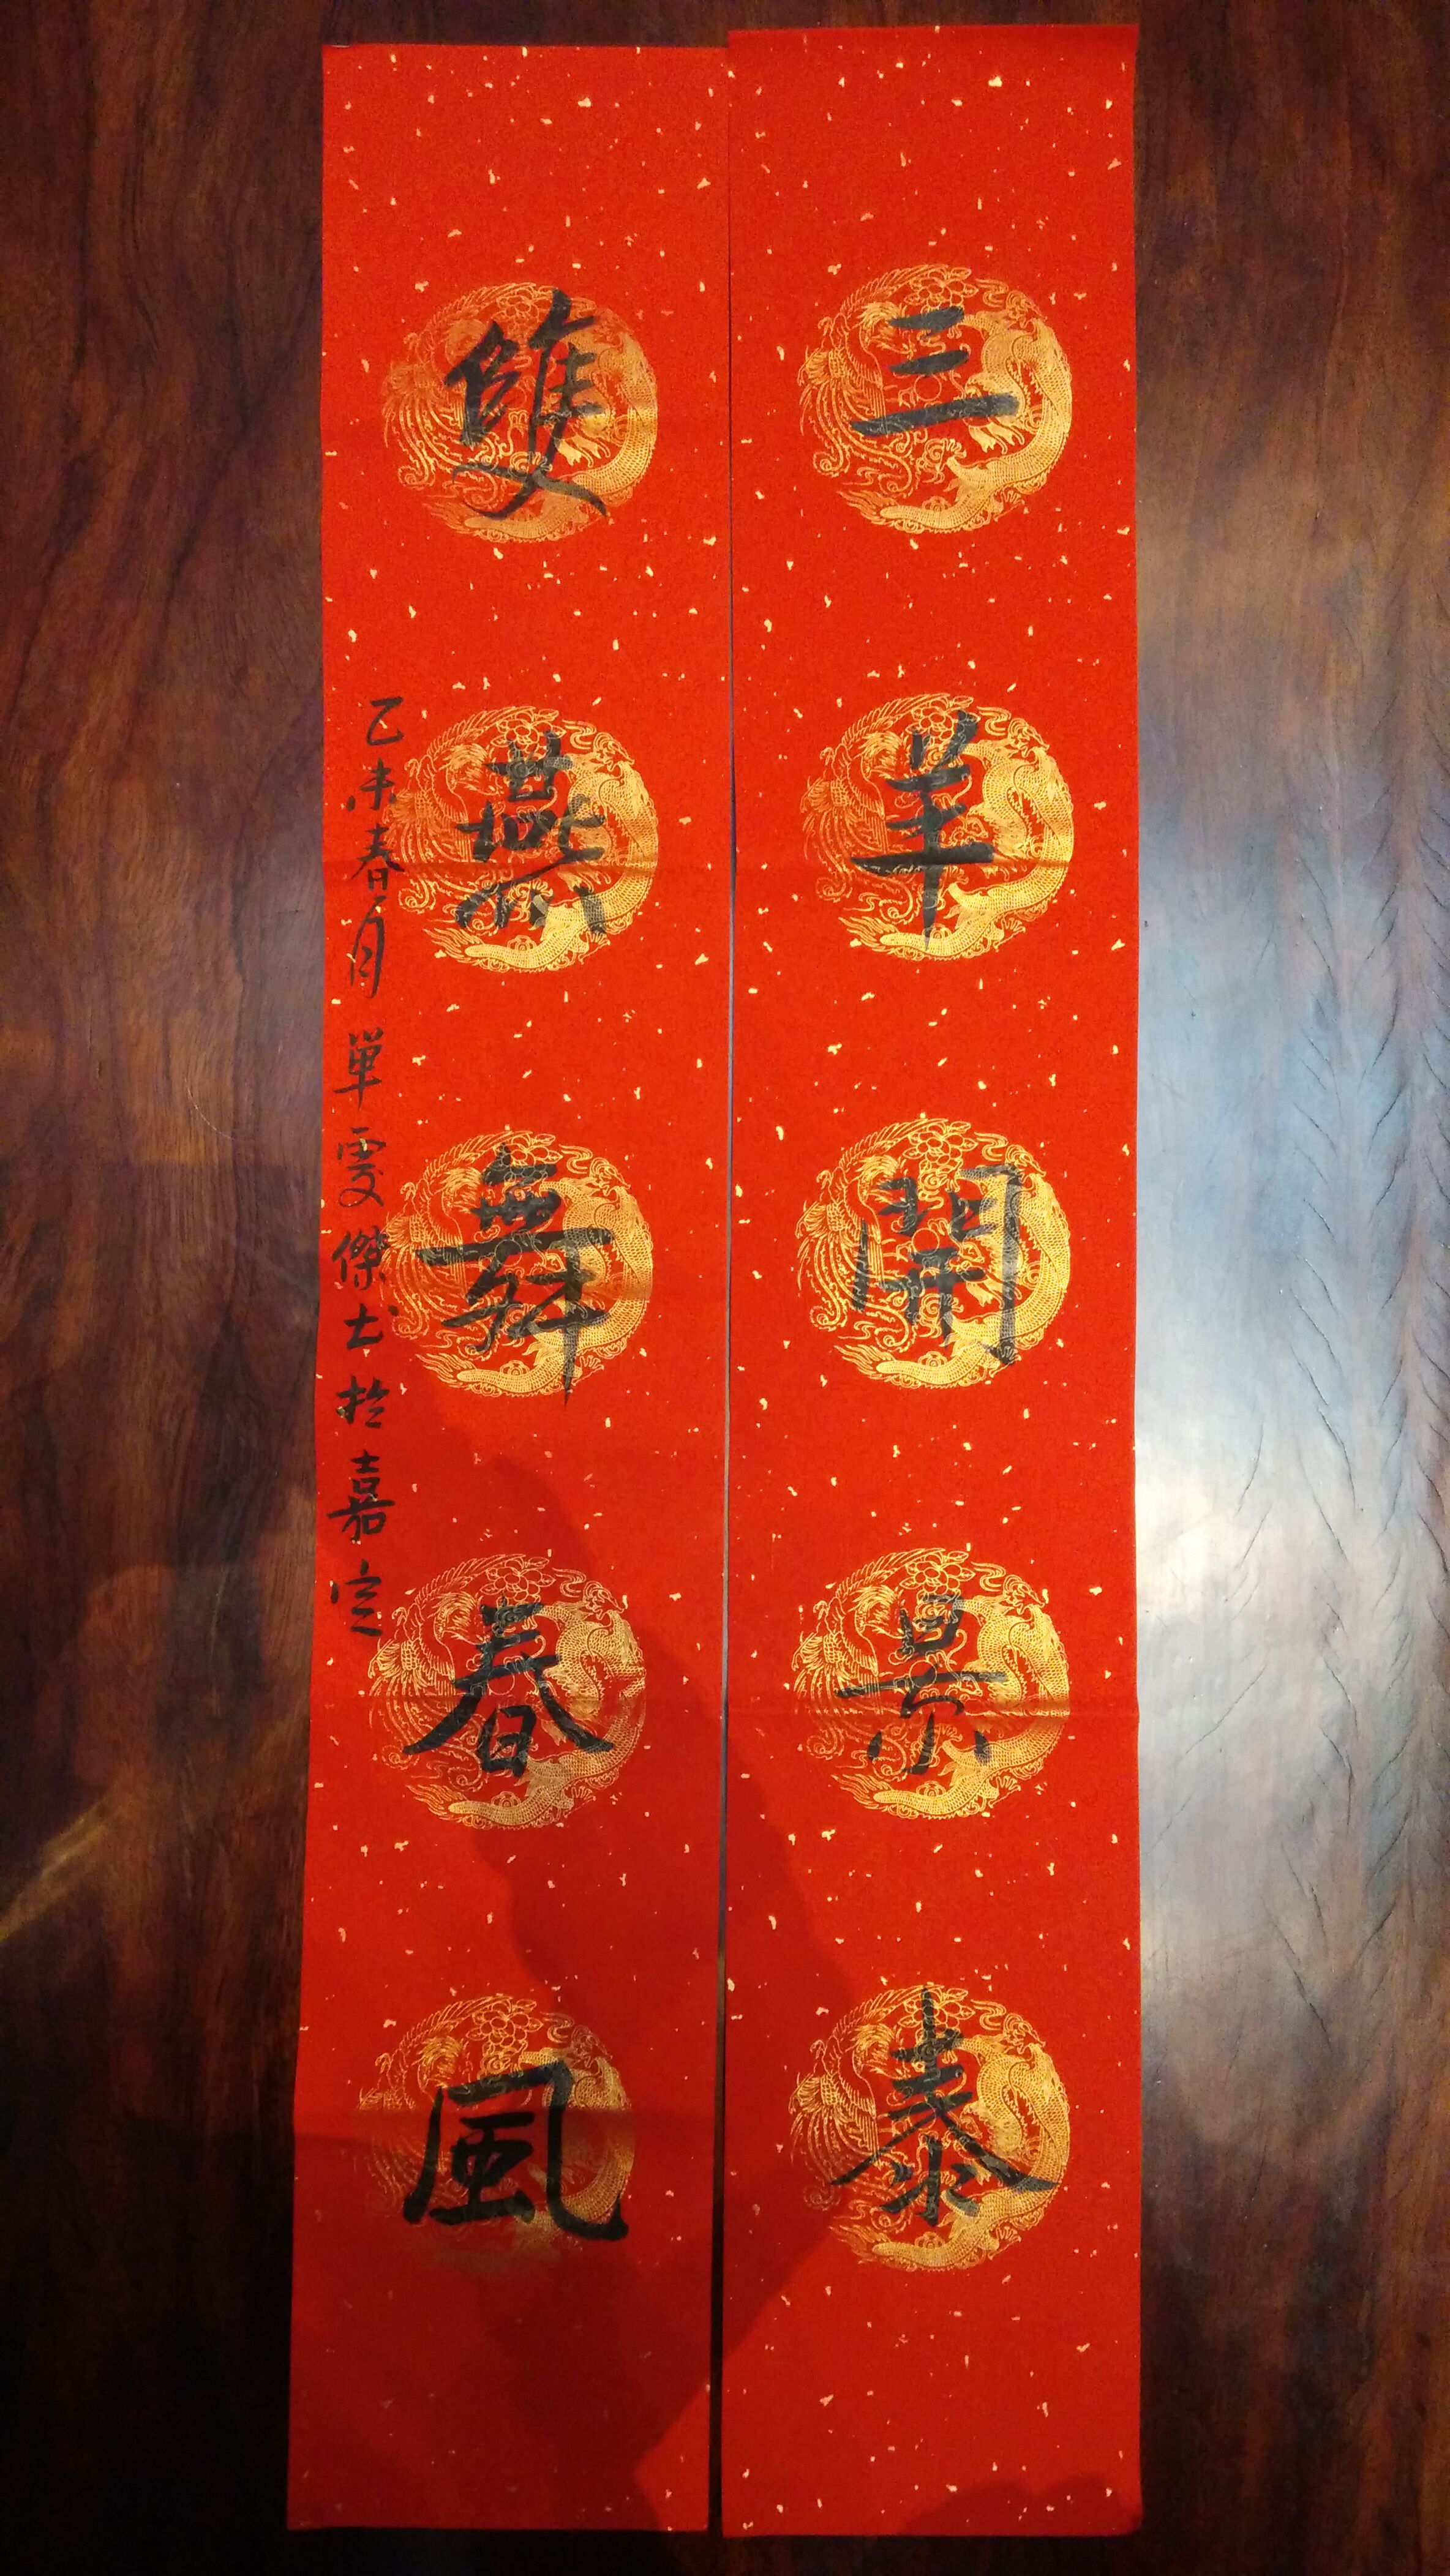 三羊開景泰
雙燕舞春風
乙未春月單雯傑書於嘉定